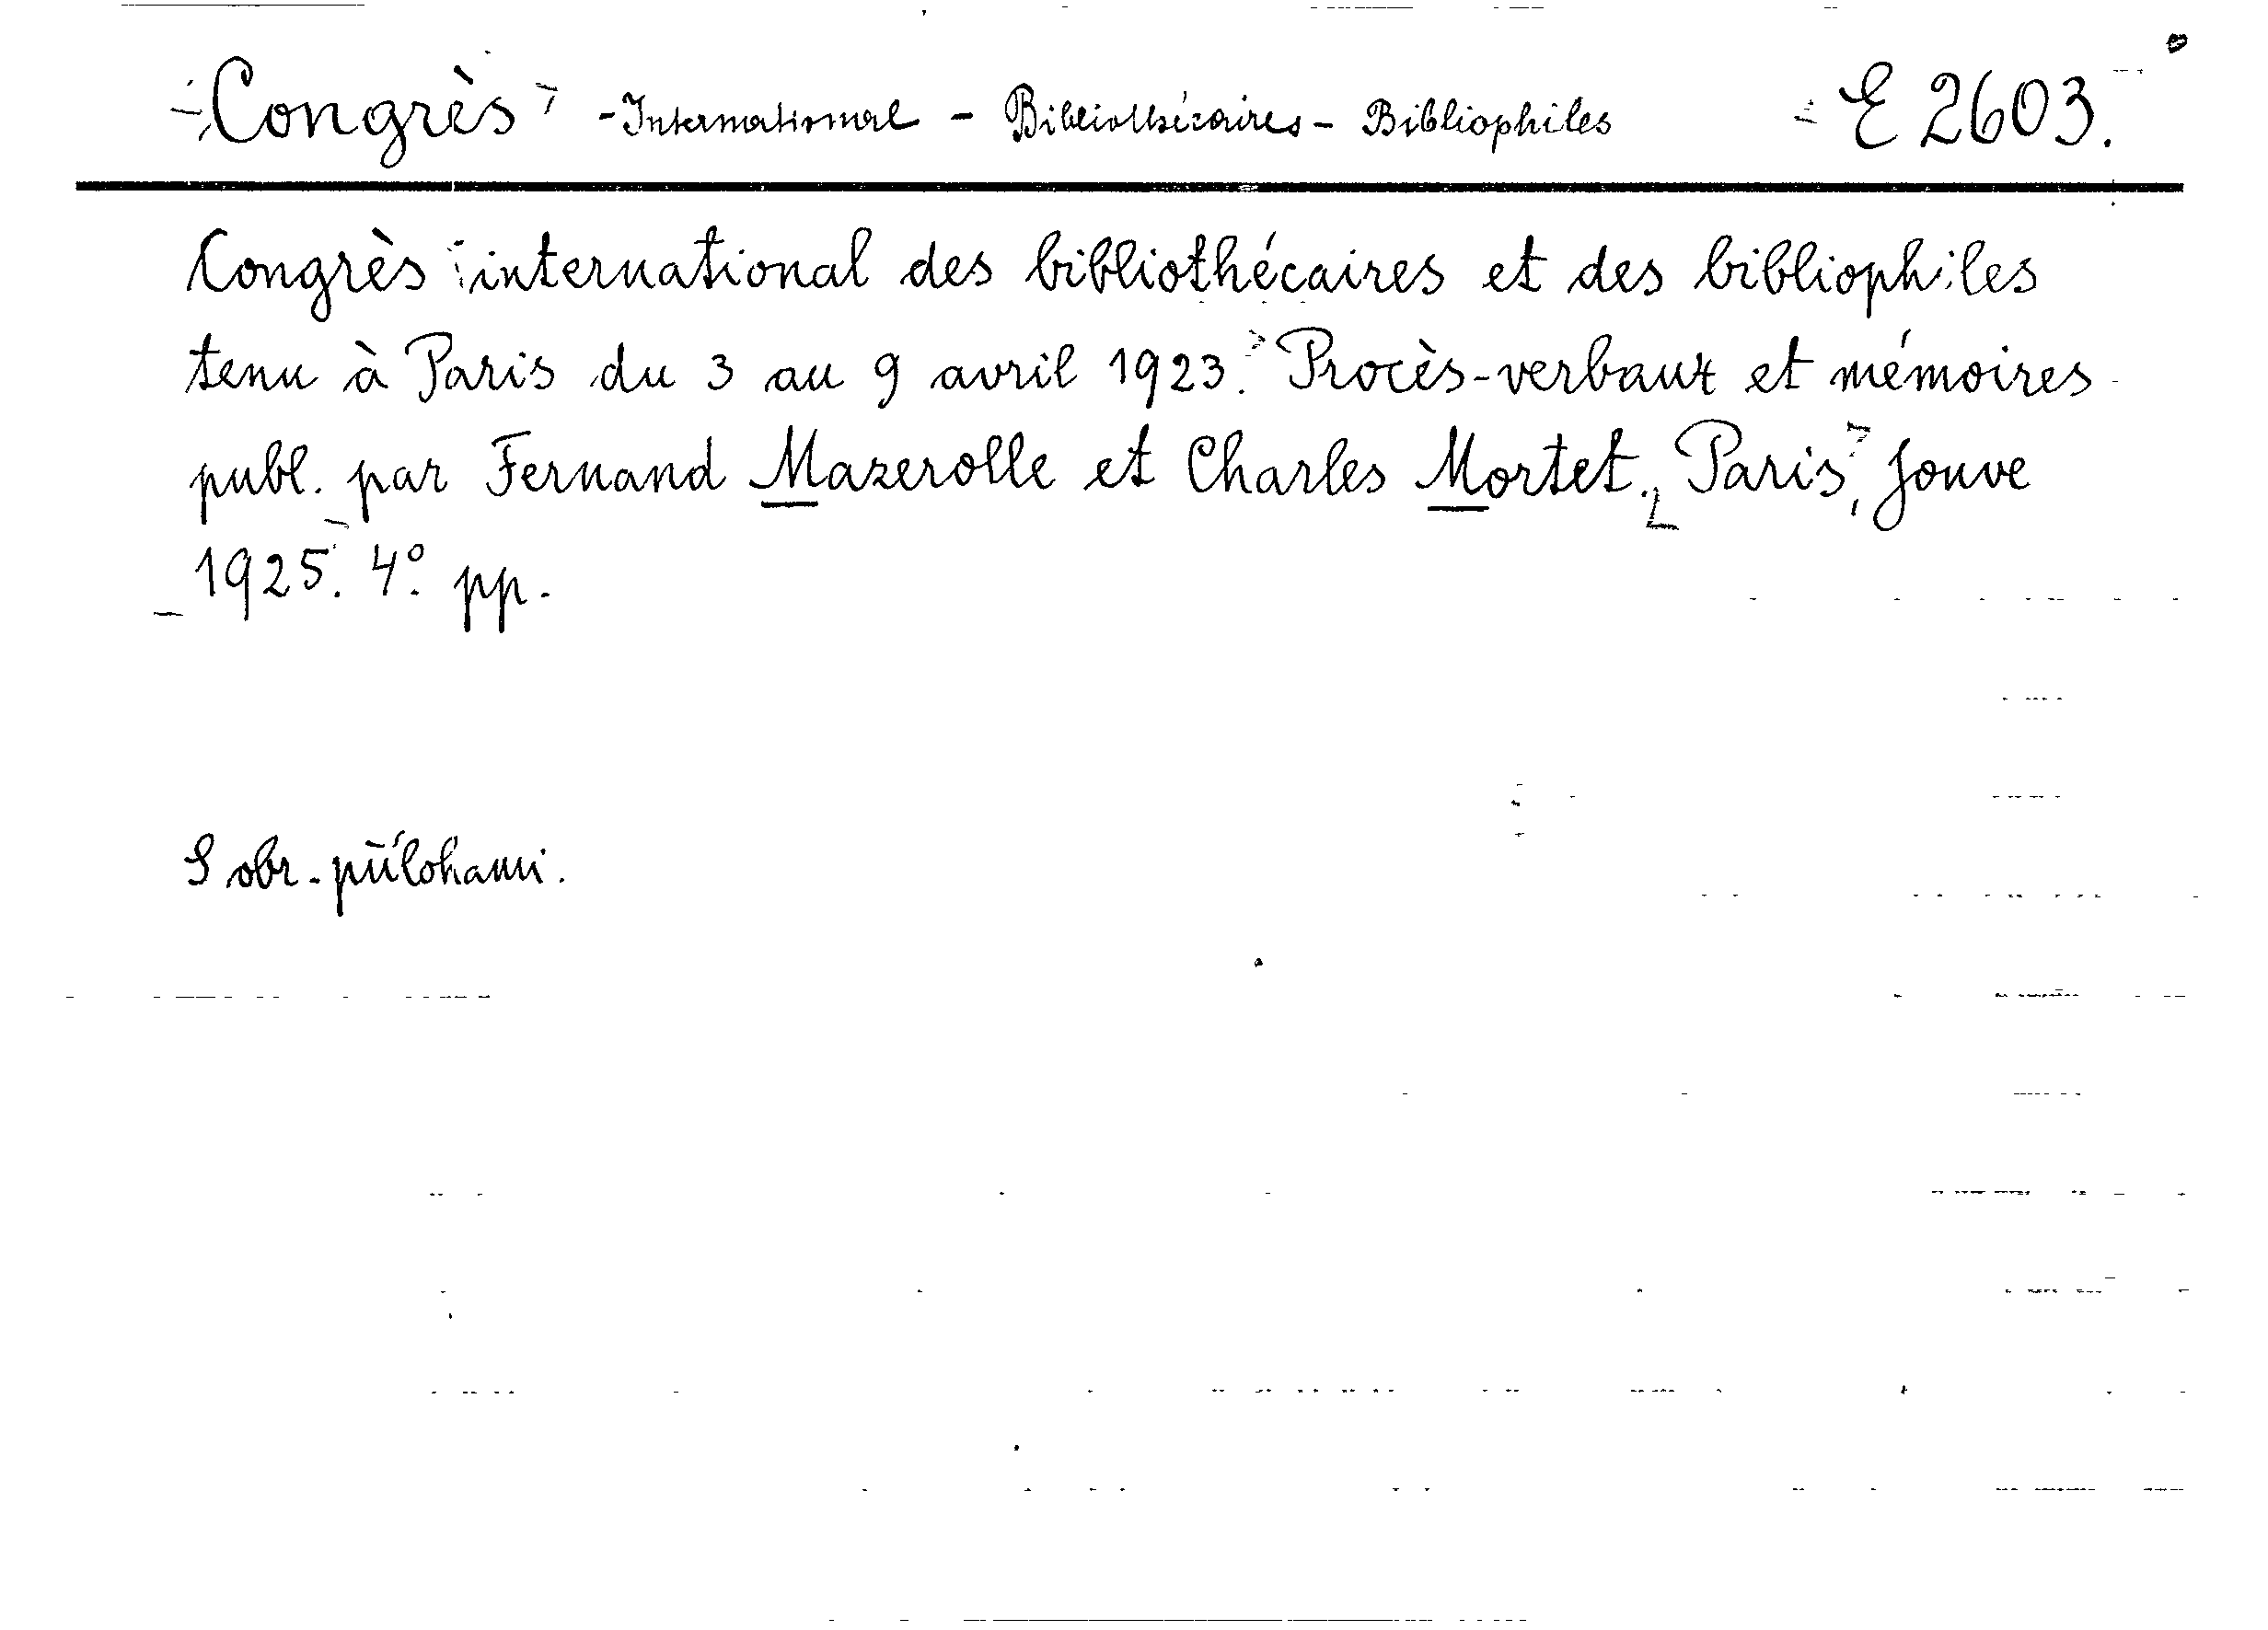 Congrès - International - Bibliothécaires - Bibliophiles E 2603.
Congrès international des bibliothécaires et des bibliophiles
tenu à Paris du 3 au 9 avril 1923. Procès-verbaux et mémoires
publ. par Fernand Mazerolle et Charles Mortet. Paris, Jouve
1925. 4° pp.
S obr. přílohami.